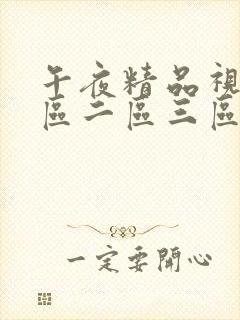 午夜精品視
區二區三區
一定要開心